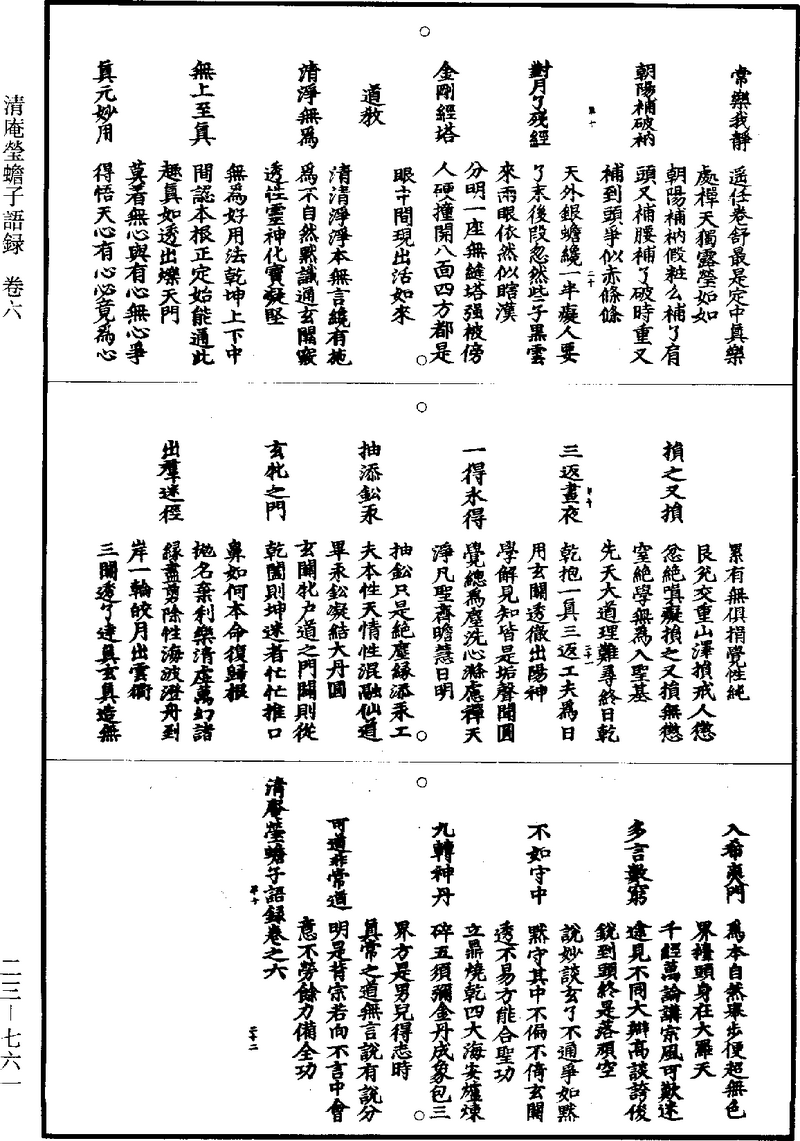 清庵瑩蟾子語録　卷六
二三—七六一
常樂我靜
遥任卷舒最是定中真樂
處禪天獨露瑩如如
朝陽補破衲
朝陽補衲假粧么補了肩
頭又補腰補了破時重又
補到頭爭似赤條條
對月了殘經
天外銀蟾纔一半癡人要
了末後段忽然些子黑雲
來兩眼依然似瞎漢
金剛經塔
分明一座無縫塔强被傍
人硬撞開八面四方都是
眼中間現出活如來
道教
清淨無爲
清清淨淨本無言纔有施
爲不自然默識通玄關竅
透性靈神化寶凝堅
無上至真
無爲好用法乾坤上下中
間認本根正定始能通此
趣真如透出爍天門
真元妙用
莫着無心與有心無心爭
得悟天心有心心竟爲心
累有無俱捐覺性純
損之又損
艮兊交重山澤損戒人懲
忿絶嗔癡損之又損無懲
窒絶學無爲入聖基
三返晝夜
先天大道理難尋終日乾
乾抱一真三返工夫爲日
用玄關透徹出陽神
一得永得
學解見知皆是垢聲聞圓
覺總爲塵洗心滌慮禪天
淨凡聖齊瞻慧日明
抽添鈆汞
抽鈆只是絶塵緣添汞工
夫本性天情性混融仙道
畢汞鈆凝結大丹圓
玄牝之門
玄關牝户道之門闢則從
乾闔則坤迷者忙忙推口
鼻如何本命復歸根
出羣迷徑
抛名棄利樂清虚萬幻諸
緣盡剪除性海波澄舟到
岸一輪皎月出雲衢
三關透了達真玄真造無
入希夷門
爲本自然舉步便超無色
界擡頭身在大羅天
多言數窮
千經萬論講宗風可歎迷
途見不同大辯高談誇後
銳到頭終是落頑空
不如守中
說妙談玄了不通爭如默
默守其中不偏不倚玄關
透不易方能合聖功
九轉神丹
立鼎燒乾四大海安爐煉
碎五須彌金丹成象包三
界方是男兒得志時
可道非常道
真常之道無言說有說分
明是背宗若向不言中會
意不勞餘力備全功
清庵瑩蟾子語録卷之六